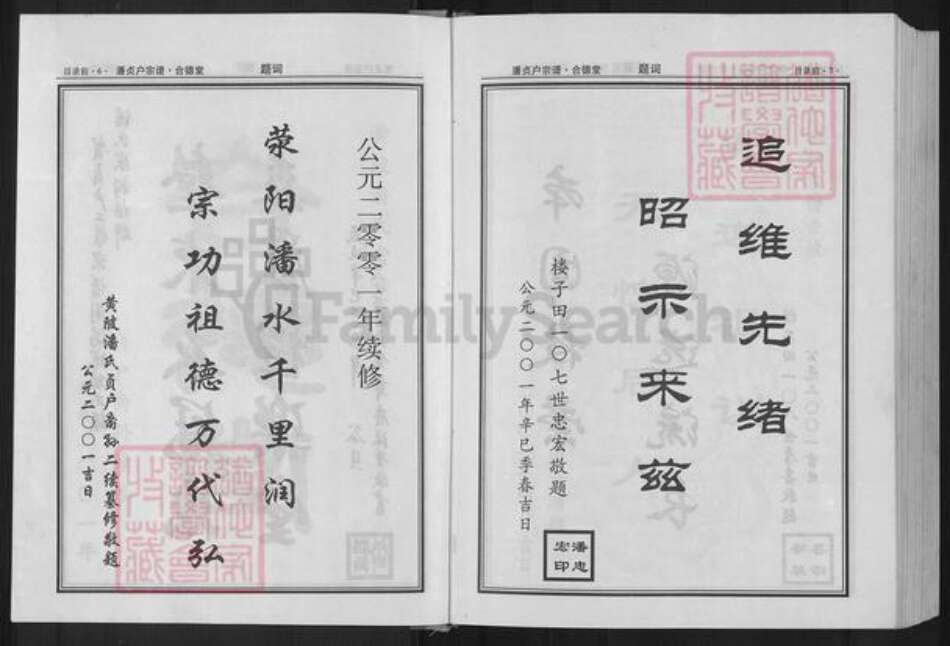 目录前·6· 潘贞户宗谱·合德堂 题词
公元二零零一年续修
荥阳潘水千里润
宗功祖德万代弘
黄陂潘氏贞户裔孙二续纂修敬题
公元二〇〇一吉日
潘贞户宗谱·合德堂 题词 目录前·7·
追维先绪
昭示来兹
楼子田一〇七世忠宏敬题
公元二〇〇一年辛巳季春吉日
潘忠宏印
FamilySearch